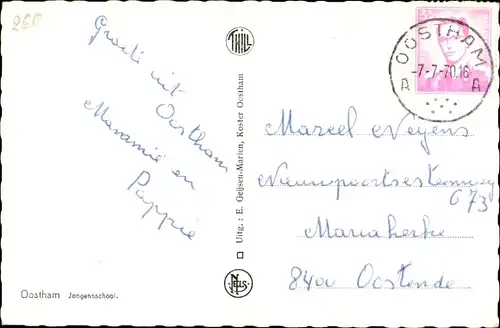 260
Groeti uit
Oostham
Mammie en
Pappie
Oostham Jongensschool.
THILL
Uitg.: E. Geijsen-Marien, Koster Oostham
NELS
OOSTHAM
-7-7-70.16
A A
Marcel Neyens
673
Mariakerke
8400 Oostende